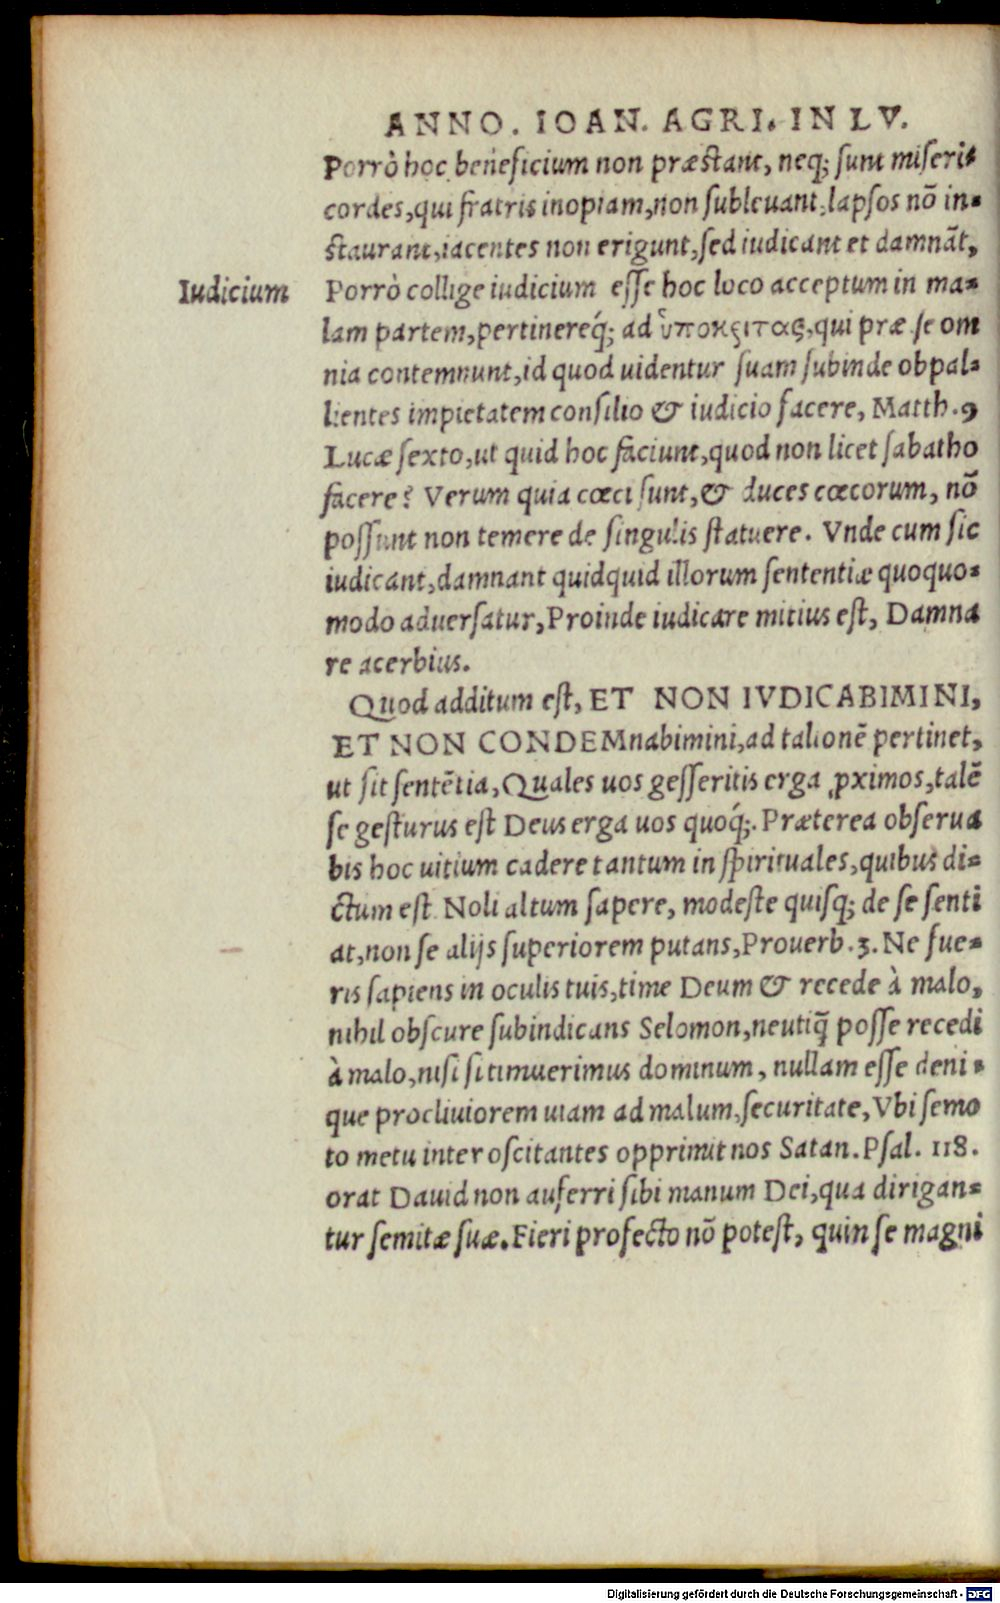 ANNO. IOAN. AGRI. IN LV.
Porrò hoc beneficium non præstant, neq; sunt miseri-
cordes, qui fratris inopiam, non subleuant, lapsos nō in-
staurant, iacentes non erigunt, sed iudicant et damnāt,
Iudicium
Porrò collige iudicium esse hoc loco acceptum in ma-
lam partem, pertinereq́; ad ὑποκριτας, qui præ se om
nia contemnunt, id quod uidentur suam subinde obpal-
lientes impietatem consilio & iudicio facere, Matth. 9
Lucæ sexto, ut quid hoc faciunt, quod non licet sabatho
facere? Verum quia cœci sunt, & duces cœcorum, nō
possunt non temere de singulis statuere. Vnde cum sic
iudicant, damnant quidquid illorum sententiæ quoquo-
modo aduersatur, Proinde iudicare mitius est, Damna
re acerbius.
Quod additum est, ET NON IVDICABIMINI,
ET NON CONDEMnabimini, ad talionē pertinet,
ut sit sentētia, Quales uos gesseritis erga ꝓximos, talē
se gesturus est Deus erga uos quoq́;. Præterea obserua
bis hoc uitium cadere tantum in spirituales, quibus di-
ctum est Noli altum sapere, modeste quisq; de se senti
at, non se alijs superiorem putans, Prouerb. 3. Ne fue-
ris sapiens in oculis tuis, time Deum & recede à malo,
nihil obscure subindicans Selomon, neutiq̄ posse recedi
à malo, nisi si timuerimus dominum, nullam esse deni-
que procliuiorem uiam ad malum, securitate, Vbi semo
to metu inter oscitantes opprimit nos Satan. Psal. 118.
orat Dauid non auferri sibi manum Dei, qua dirigan-
tur semitæ suæ. Fieri profecto nō potest, quin se magni
Digitalisierung gefördert durch die Deutsche Forschungsgemeinschaft - DFG